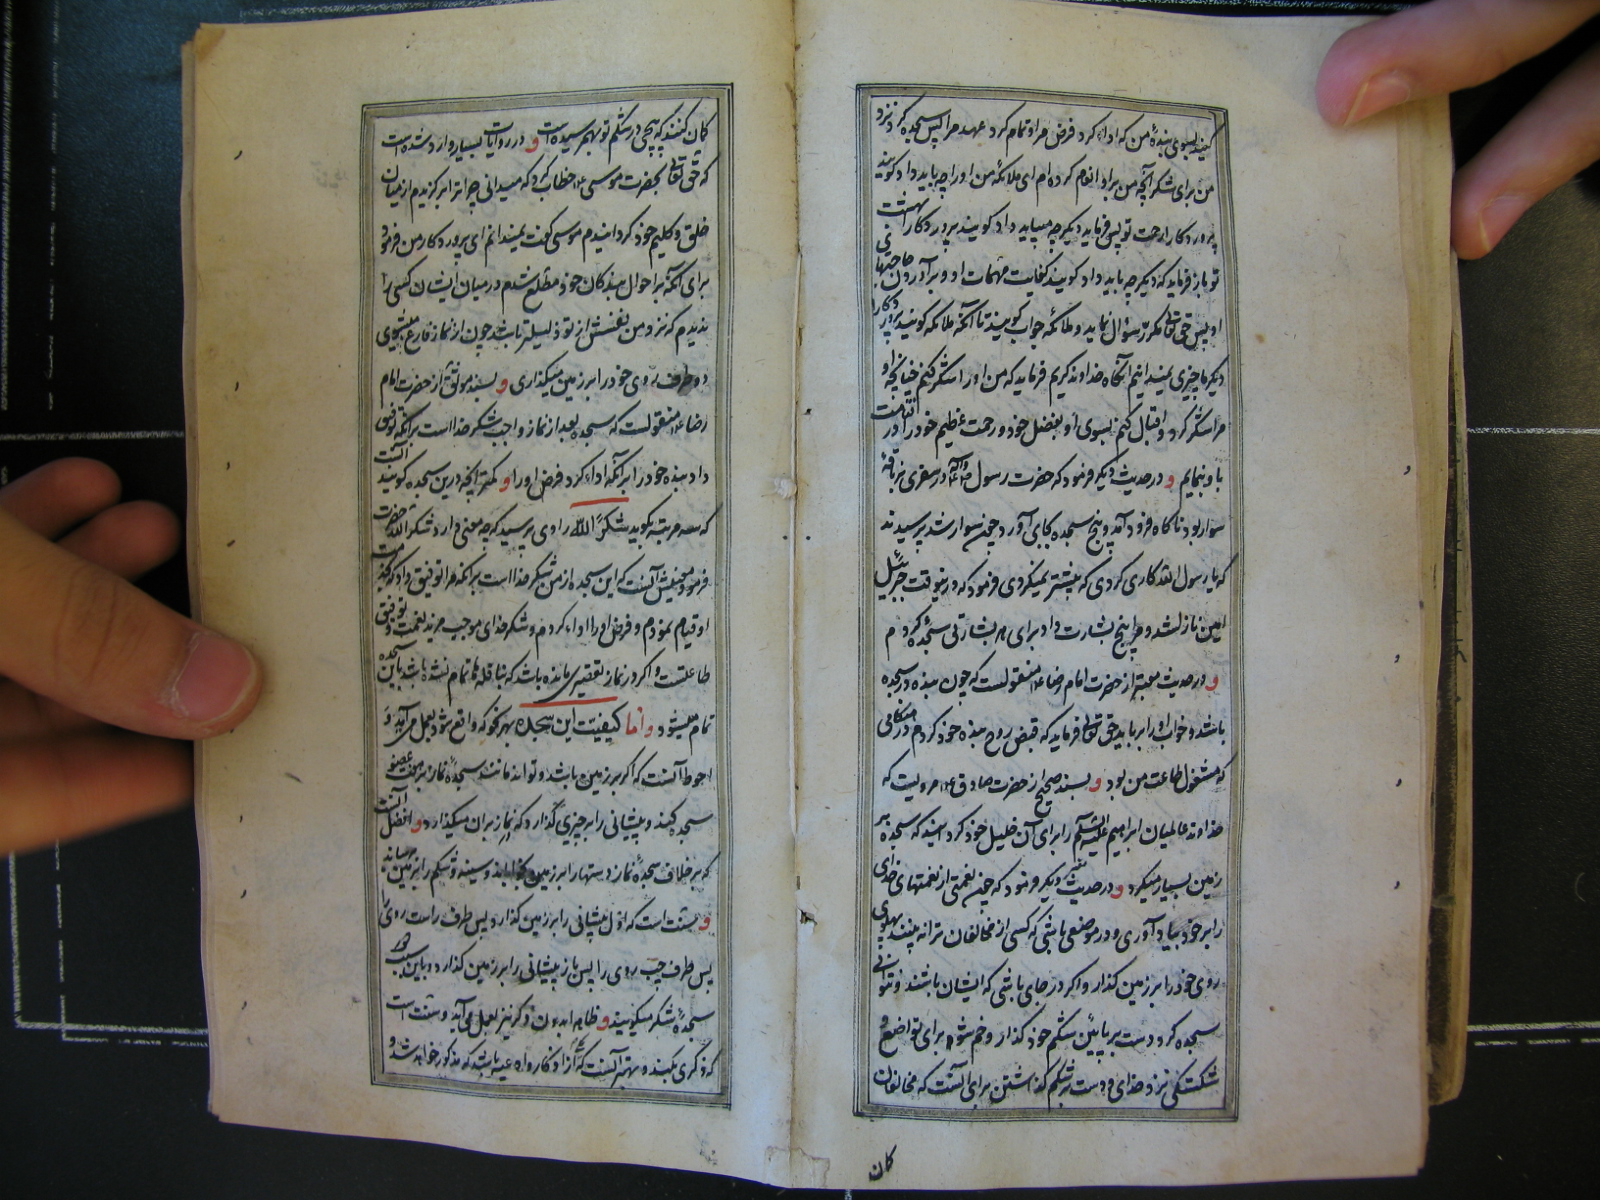 کنید بسوی بندهٔ من که اداء کرد فرض مرا و تمام کرد عهد مرا پس سجده کرد نزد
من برای شکر آنچه من براو انعام کرده‌ام ای ملائکه من او را چه باید داد کویند
پرورد کارا رحمت تو پس فرماید دیکر چه میباید داد کویند پرورد کارا بهشت
تو باز فرماید که دیکر چه باید داد کویند کفایت مهمات او و برآوردن حاجتهای
او پس حق تعالی مکرر سؤال نماید و ملائکه جواب کویند تا آنکه ملائکه کویند پرورد کارا
دیکر ما چیزی نمیدانیم آنکاه خداوند کریم فرماید که من او را شکر کنم چنانچه او
مرا شکر کرد و اقبال کنم بسوی او بفضل خود و رحمت عظیم خود را در قیامت
باو بنمایم و در حدیث دیکر فرمود که حضرت رسول در سفری بر ناقهٔ
سوار بود ناکاه فرود آمد و پنج سجده بجای آورد چون سوار شد پرسیدند
که یا رسول الله کاری کردی که پیشتر نمیکردی فرمود که درینوقت جبرئیل
امین نازل شد و مرا پنج بشارت داد برای هر بشارتی سجدهٔ کردم
و در حدیث معتبر از حضرت امام رضا منقولست که چون بنده در سجده
باشد و خواب او را برباید حق تعالی فرماید که قبض روح بنده خود کردم در هنکامی
که مشغول طاعت من بود و بسند صحیح از حضرت صادق مرویست که
خداوند عالمیان ابراهیم علیه السلم را برای آن خلیل خود کردانید که سجده بر
زمین بسیار میکرد و در حدیث دیکر فرمود که چون نعمتی از نعمتهای خدای
را بر خود بیاد آوری و در موضعی باشی که کسی از مخالفان ترا نه بیند پهلوی
روی خود را بر زمین کذار و اکر در جای باشی که ایشان باشند و نتوانی
سجده کرد دست بر پایین شکم خود کذار و خم شو برای تواضع و
شکستکی نزد خدای و دست بر شکم کذاشتن برای آنست که مخالفان
کان
کان کنند که پیچی در شکم تو بهم رسیده است و در روایات بسیار وارد شده است
که حق تعالی بحضرت موسی خطاب کرد که میدانی چرا ترا برکزیدم از میان
خلق و کلیم خود کردانیدم موسی کفت نمیدانم ای پرورد کار من فرمود
برای آنکه بر احوال بندکان خود مطلع شدم در میان ایشان کسی را
ندیدم که نزد من نفسش از تو ذلیلتر باشد چون از نماز فارغ میشوی
دو طرف روی خود را بر زمین میکذاری و بسند موثق از حضرت امام
رضا منقولست که سجده بعد از نماز واجب شکر خدا است برآنکه توفیق
داد بنده خود را برآنکه اداء کرد فرض او را و کمتر آنچه درین سجده کویند آنست
که سه مرتبه بکوید شکراً لله راوی پرسید که چه معنی دارد شکراً لله حضرت
فرمود معنیش آنست که این سجده از من شکر خدا است برآنکه مرا توفیق داد که بخدمت
او قیام نمودم و فرض او را اداء کردم و شکر خدای موجب مزید نعمت و توفیق
طاعتست و اکر در نماز تقصیری مانده باشد که بنافله‌ها تمام نشده باشد باین سجده
تمام میشود و اما کیفیت این سجده بهر نحو که واقع شود بعمل می‌آید و
احوط آنست که اکر بر زمین باشد و تواند مانند سجدهٔ نماز بر هفت عضو
سجده کند و پیشانی را بر چیزی کذارد که نماز بران میکذارد و افضل آنست
که بر خلاف سجدهٔ نماز دستها را بر زمین بخواباند و سینه و شکم را بر زمین رساند
و سنت است که اول پیشانی را بر زمین کذارد پس طرف راست روی را
پس طرف چپ روی را پس باز پیشانی را بر زمین کذارد و باین سبب
سجدهٔ شکر میکویند و ظاهرا بدون ذکر نیز بعمل می‌آید و سنت است
که ذکری بکند و بهتر آنست که از اذکار و ادعیه باشد که مذکور خواهد شد و